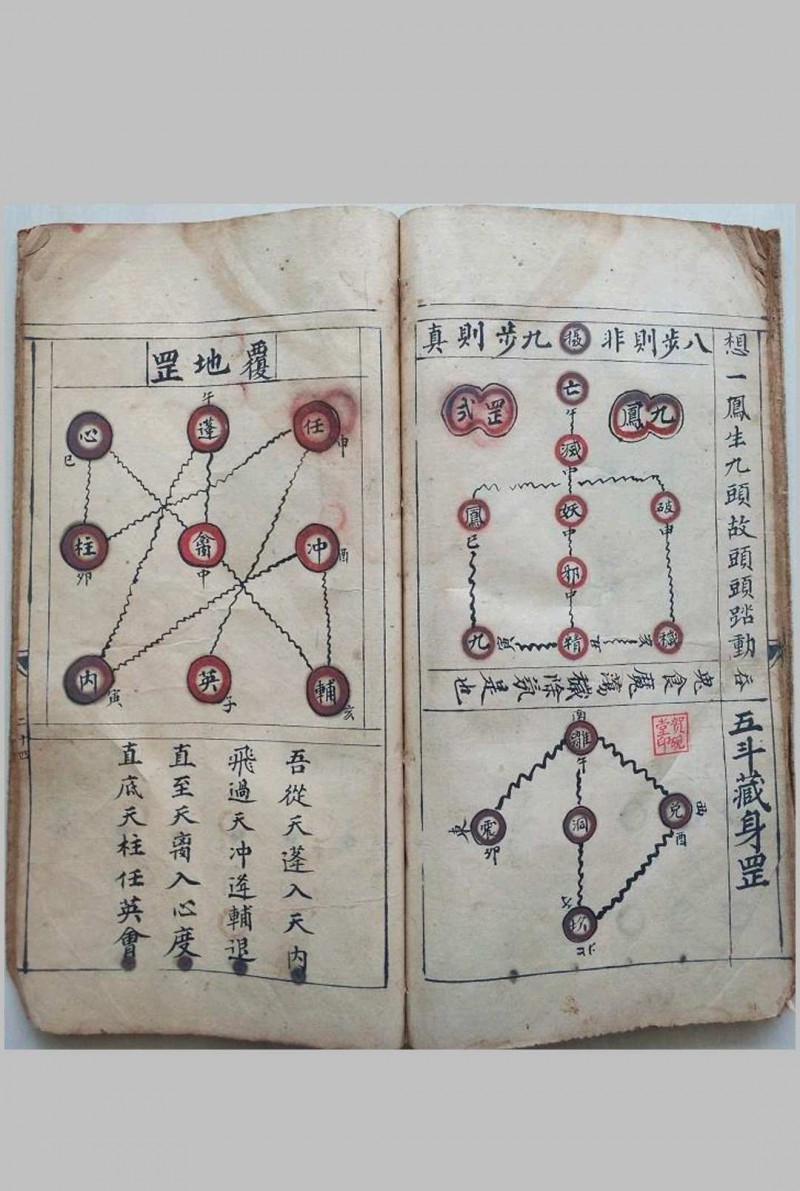 想一鳳生九頭故頭頭踏動吞
八步則非
攝
九步則真
九鳳
罡式
亡
午
滅
中
破
申
妖
中
鳳
巳
邪
中
穢
亥
精
子
九
寅
鬼食魔蕩穢除氛是也
五斗藏身罡
賀硯堂印
南
離
午
兌
西
酉
洞
震
東
卯
坎
子
北
覆地罡
任
申
蓬
午
心
巳
冲
酉
禽
中
柱
卯
輔
亥
英
子
内
寅
吾從天蓬入天内
飛過天冲逄輔退
直至天禽入心度
直底天柱任英會
二十四